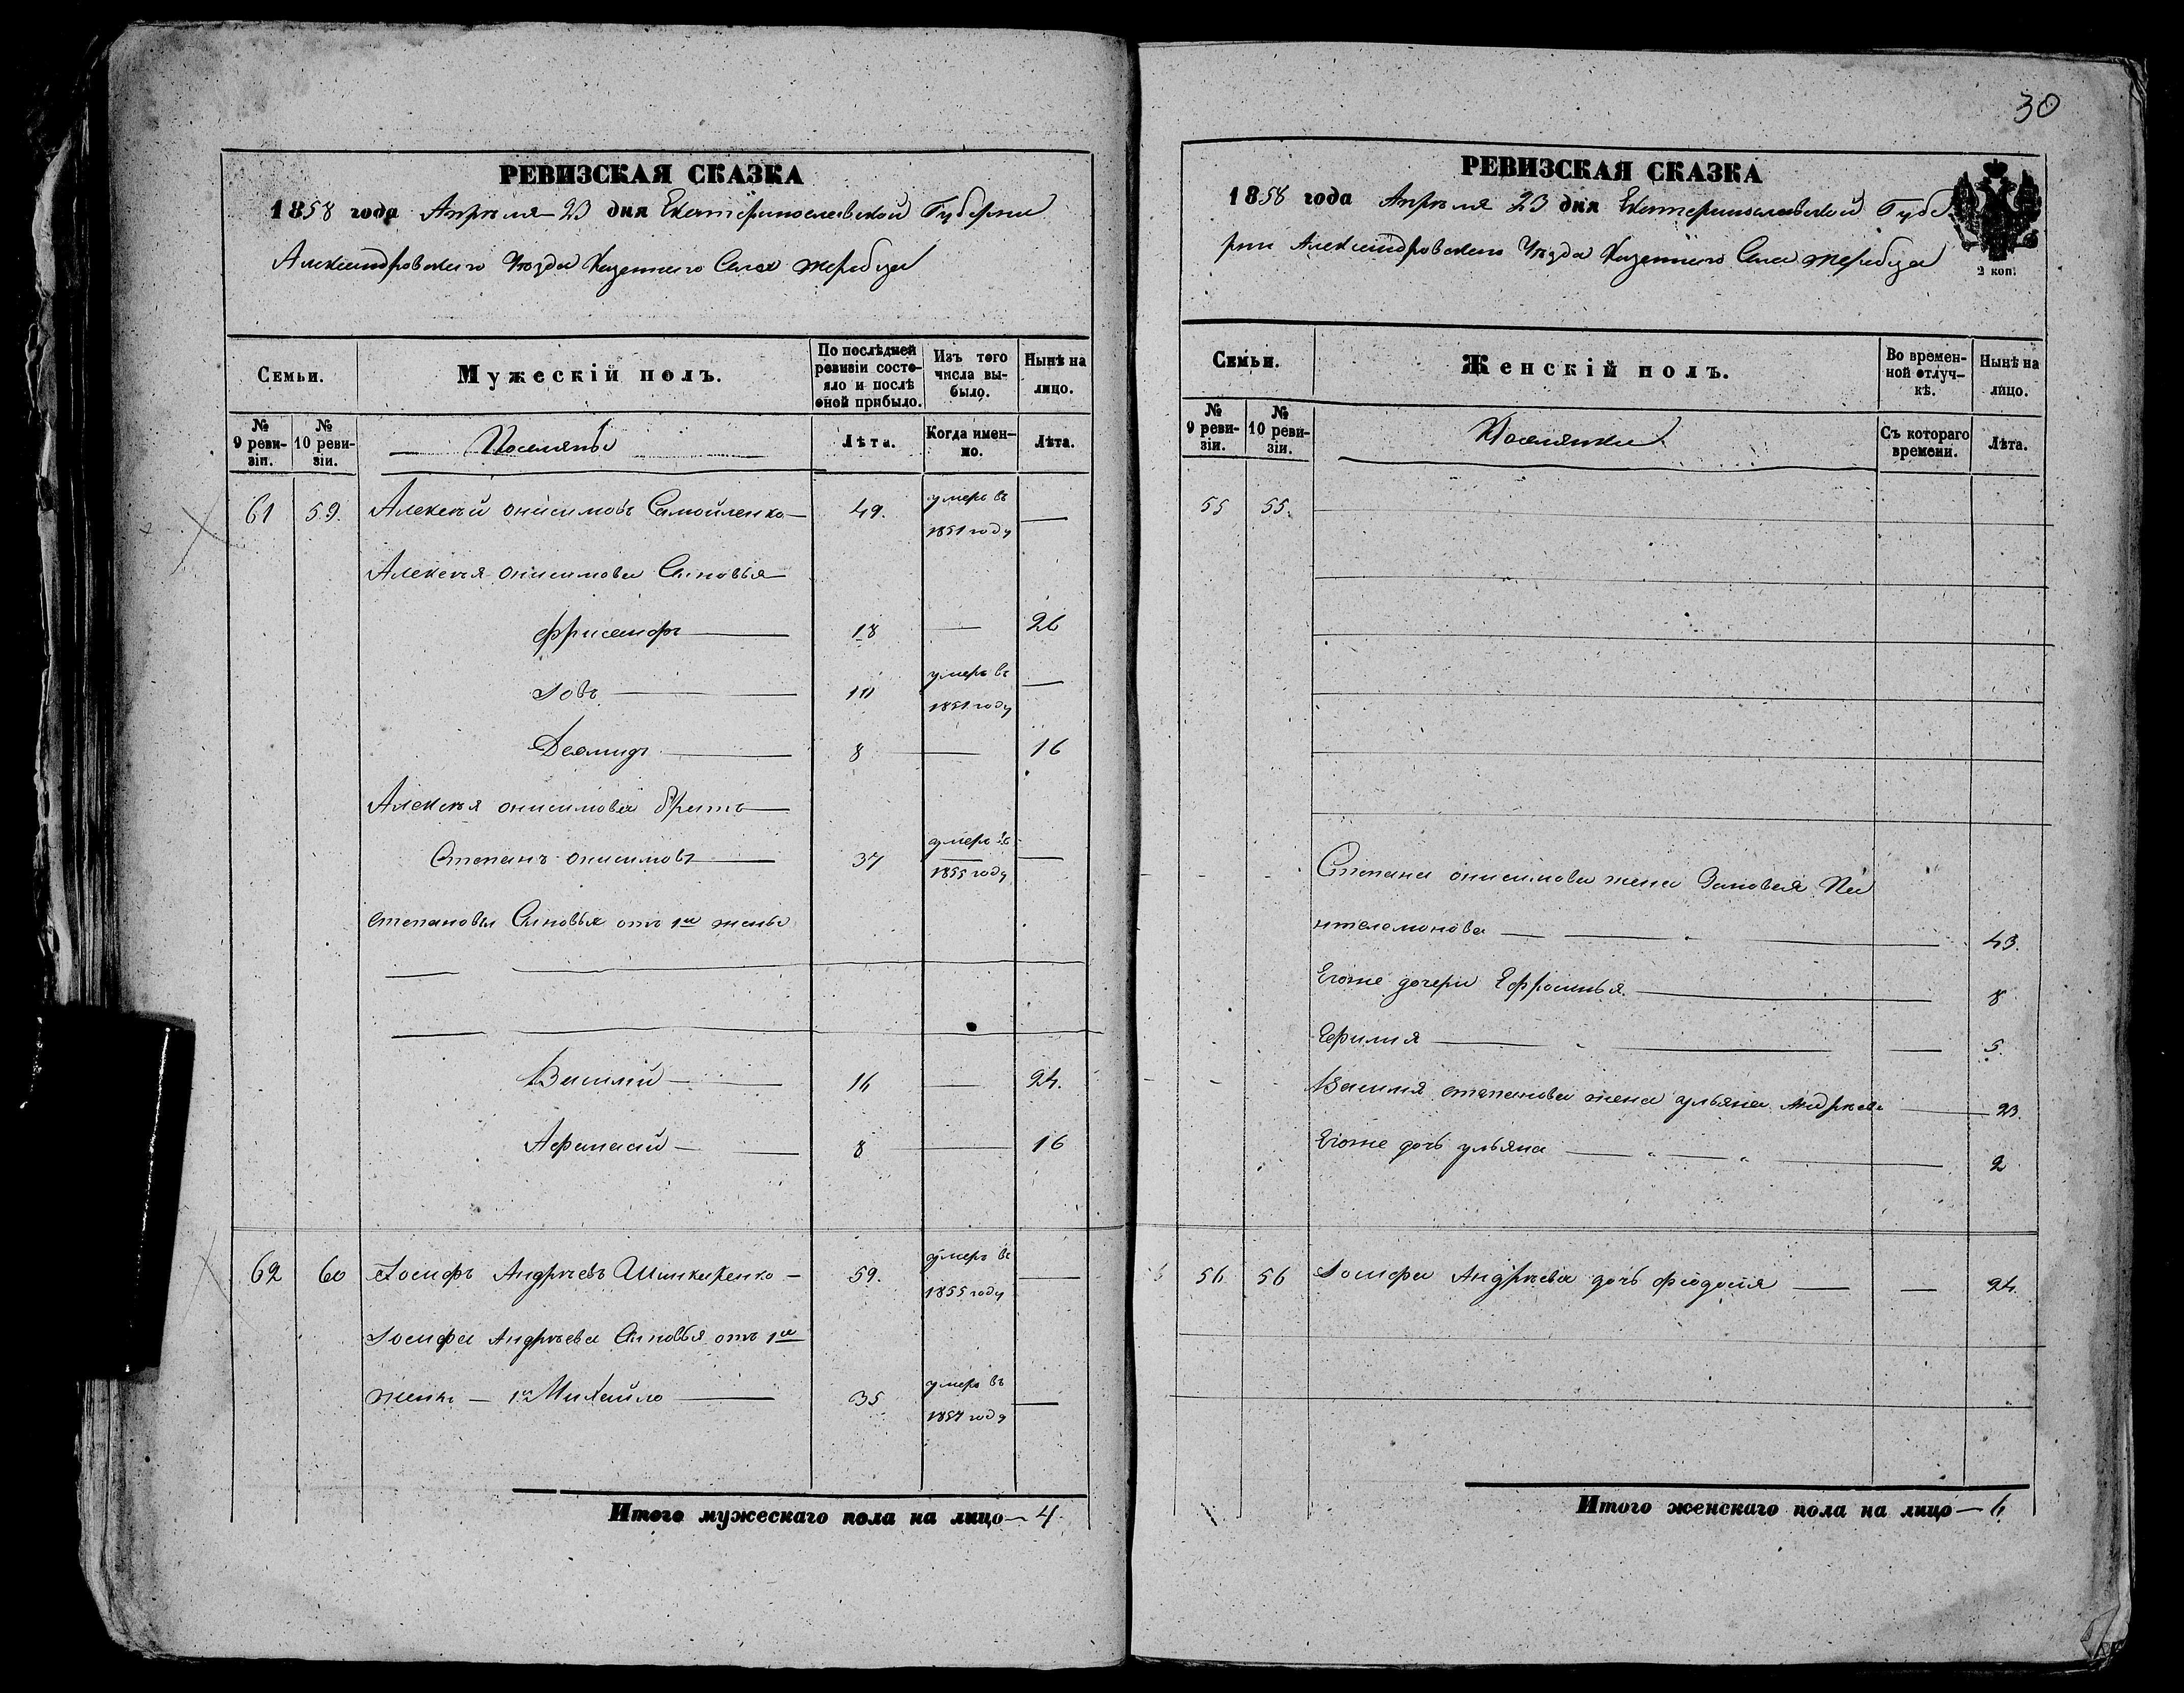 РЕВИЗСКАЯ СКАЗКА
1858 года Апреля 23 дня Екатеринославской Губернии
Александровского Уезда Казенного Села Жеребца
Семьи.
Мужескій полъ.
По послѣдней ревизіи состояло и послѣ оной прибыло.
Изъ того числа выбыло.
Нынѣ на лицо.
№ 9 ревизіи.
№ 10 ревизіи.
Поселяны
Лѣта.
Когда именно.
Лѣта.
61 59. Алексѣй Онисимовъ Самойленко 49. умеръ въ 1851 году
Алексѣя Онисимова Сыновья
18 26
Іовъ 10 умеръ въ 1851 году
Деомидъ 8 16
Алексѣя Онисимова Братъ
Степанъ Онисимовъ 37 умеръ въ 1855 году
Степановы Сыновья отъ 1й жены
Василий 16 24.
Афанасий 8 16
62 60 Іосифъ Андрѣевъ 59. умеръ въ 1855 году
Іосифа Андрѣева Сыновья отъ 1й
жены 1й Михайло 35 умеръ въ 1857 году
Итого мужескаго пола на лицо 4
30
РЕВИЗСКАЯ СКАЗКА
1858 года Апреля 23 дня Екатеринославской Губе
рнии Александровского Уезда Казенного Села Жеребца
2 коп.
Семьи.
Женскій полъ.
Во временной отлучкѣ.
Нынѣ на лицо.
№ 9 ревизіи.
№ 10 ревизіи.
Поселянки
Съ котораго времени.
Лѣта.
55 55.
Степана Онисимова жена Зиновья Па
нтелемонова 43.
Егоже дочери Ефросинья 8
Ефимия 5.
Василия Степанова жена ульяна Андрѣева 23.
Егоже дочь ульяна 2
56 56 Іосифа Андрѣева дочь Феодосия 24.
Итого женскаго пола на лицо 6